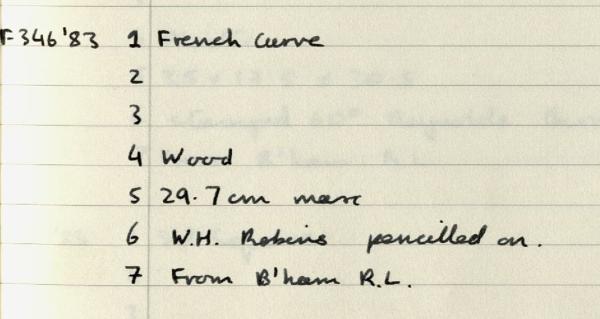 F346'83 1 French Curve
2
3
4 Wood
5 29.7cm max
6 W.H. Robins pencilled on.
7 From B'ham R.L.